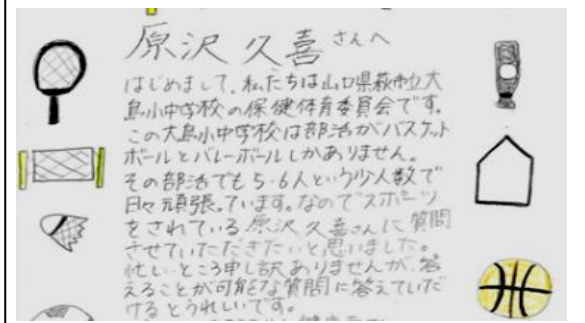 原沢 久喜さんへ
はじめまして、私たちは山口県萩市立大
島小中学校の保健体育委員会です。
この大島小中学校は部活がバスケット
ボールとバレーボールしかありません。
その部活でも5・6人という少人数で
日々頑張っています。なのでスポーツ
をされている原沢久喜さんに質問
させていただきたいと思いました。
忙しいところ申し訳ありませんが、答
えることが可能な質問に答えていただ
けるとうれしいです。